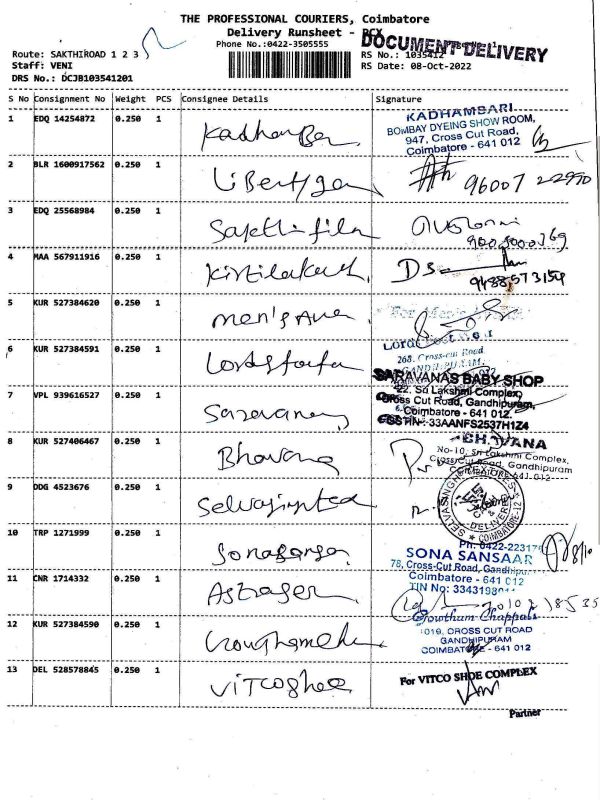 THE PROFESSIONAL COURIERS, Coimbatore
Delivery Runsheet - PCX
Phone No.:0422-3505555
DOCUMENT DELIVERY
Route: SAKTHIROAD 1 2 3
Staff: VENI
DRS No.: DCJB103541201
RS No.: 1035412
RS Date: 08-Oct-2022
S No Consignment No Weight PCS Consignee Details Signature
1 EDQ 14254872 0.250 1
KADHAMBARI
BOMBAY DYEING SHOW ROOM,
947, Cross Cut Road,
Coimbatore - 641 012
2 BLR 1600917562 0.250 1
3 EDQ 25568984 0.250 1 Sakthi film
4 MAA 567911916 0.250 1
5 KUR 527384620 0.250 1 men's Ave
6 KUR 527384591 0.250 1
268, Cross-cut Road
SARAVANAS BABY SHOP
22, Sri Lakshmi Complex,
Cross Cut Road, Gandhipuram,
Coimbatore - 641 012.
GSSTIN:-33AANFS2537H1Z4
7 VPL 939616527 0.250 1 Saravanas
8 KUR 527406467 0.250 1 Bhavana
BHAVANA
No-10, Sri Lakshmi Complex,
Cross Cut Road, Gandhipuram
9 DDG 4523676 0.250 1
DELIVERY
COIMBATORE-12
10 TRP 1271999 0.250 1
Ph: 0422-22317
SONA SANSAAR
78, Cross-Cut Road, Gandhipur
Coimbatore - 641 012
TIN No: 3343198
11 CNR 1714332 0.250 1
12 KUR 527384590 0.250 1
Gowtham Chappals
1019, CROSS CUT ROAD
GANDHIPURAM
COIMBATORE - 641 012
13 DEL 528578845 0.250 1 Vitcoshoe
For VITCO SHOE COMPLEX
Partner